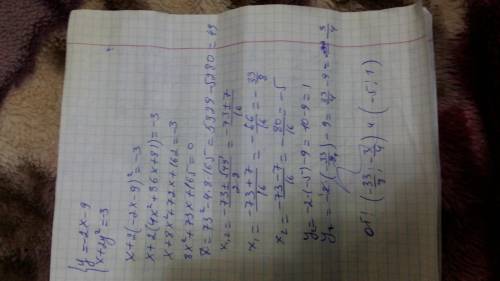 { y = -2x-9
x+2y² = -3
x+2(-2x-9)² = -3
x+2(4x²+36x+81) = -3
x+8x²+72x+162 = -3
8x²+73x+165 = 0
D = 73²-4·8·165 = 5329-5280 = 49
x₁,₂ = (-73±√49)/(2·8) = (-73±7)/16
x₁ = (-73+7)/16 = -66/16 = -33/8
x₂ = (-73-7)/16 = -80/16 = -5
y₂ = -2·(-5)-9 = 10-9 = 1
y₁ = -2·(-33/8)-9 = 33/4-9 = -3/4
от: (-33/8; -3/4) и (-5; 1)